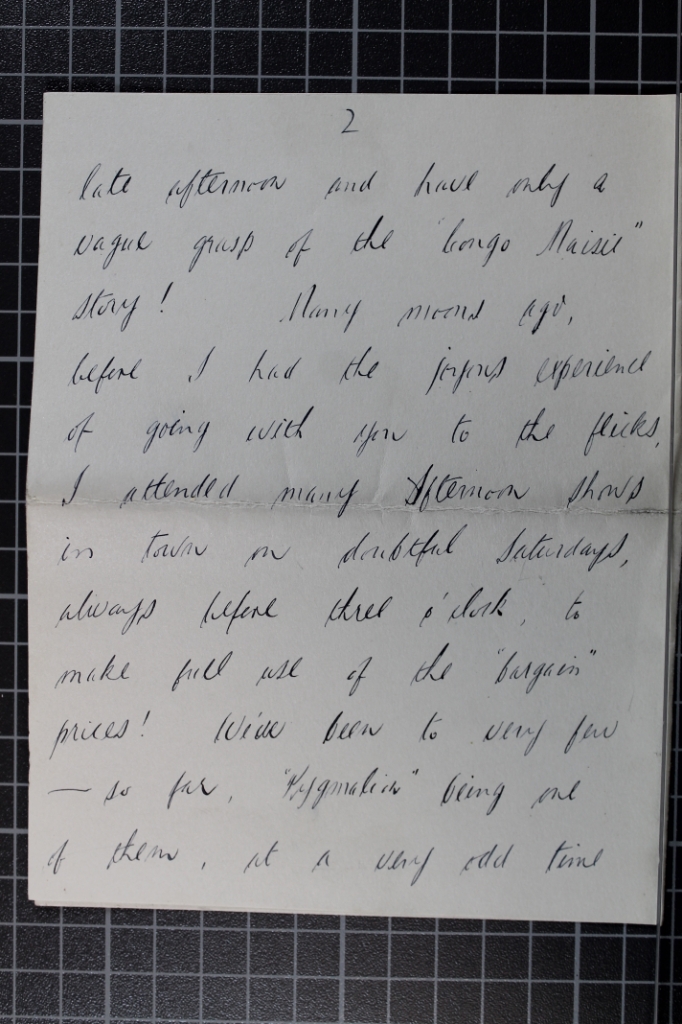 2
late afternoon and have only a
vague grasp of the "Congo Maisie"
story! Many moons ago,
before I had the joyous experience
of going with you to the flicks,
I attended many afternoon shows
in town on doubtful Saturdays,
always before three o'clock, to
make full use of the "bargain"
prices! We've been to very few
— so far, "Pygmalion" being one
of them, at a very odd time